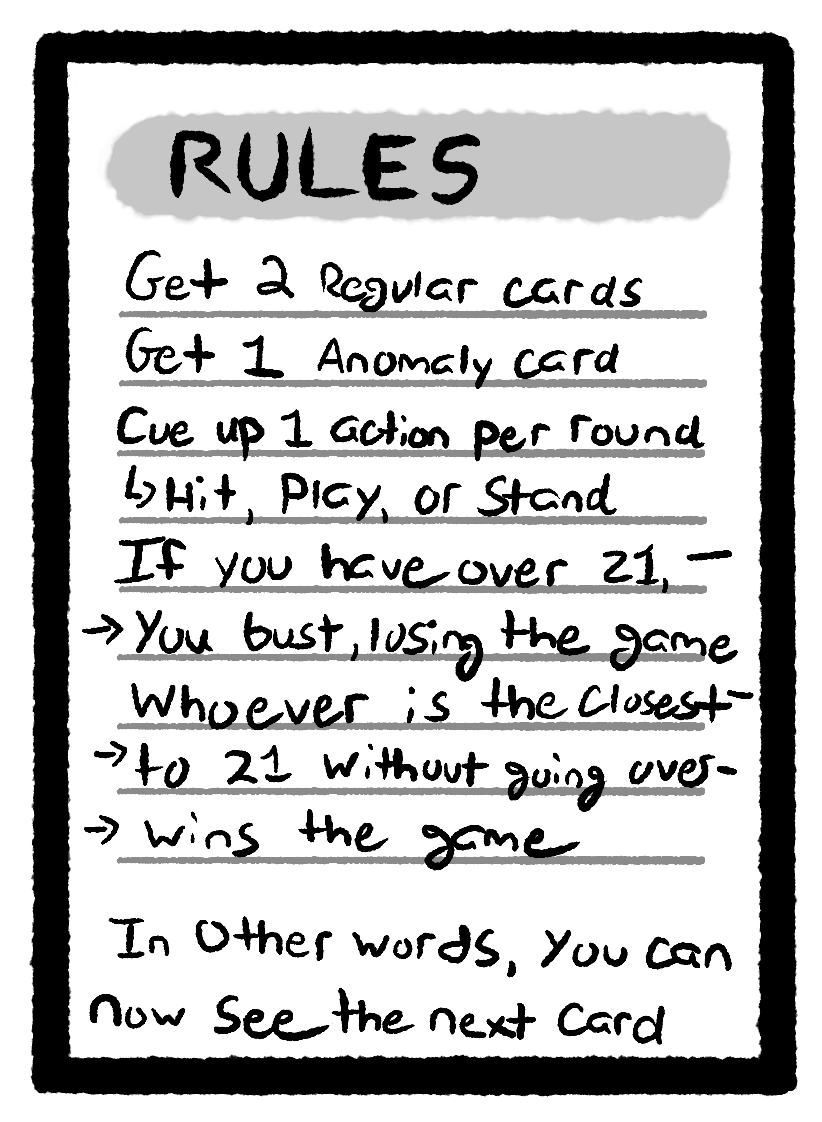 RULES
Get 2 Regular cards
Get 1 Anomaly card
Cue up 1 action per round
↳Hit, Play, or Stand
If you have over 21, —
→ You bust, losing the game
Whoever is the closest-
→ to 21 without going over-
→ wins the game
In Other words, you can
now see the next card